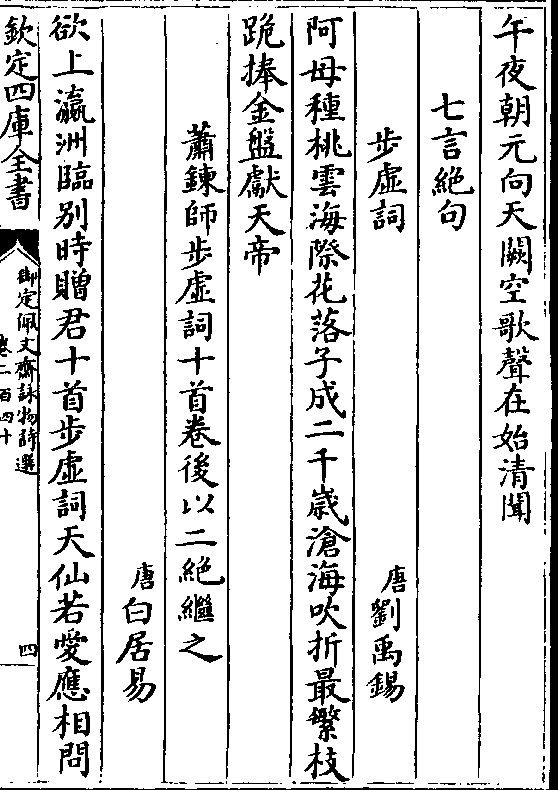 午夜朝元向天闕空歌聲在始清聞
七言絕句
步虛詞
唐劉禹錫
阿母種桃雲海際花落子成二千歲滄海吹折最繁枝
跪捧金盤獻天帝
蕭鍊師步虛詞十首卷後以二絕繼之
唐白居易
欲上瀛洲臨別時贈君十首步虛詞天仙若愛應相問
欽定四庫全書
御定佩文齋詠物詩選
卷二百四十
四